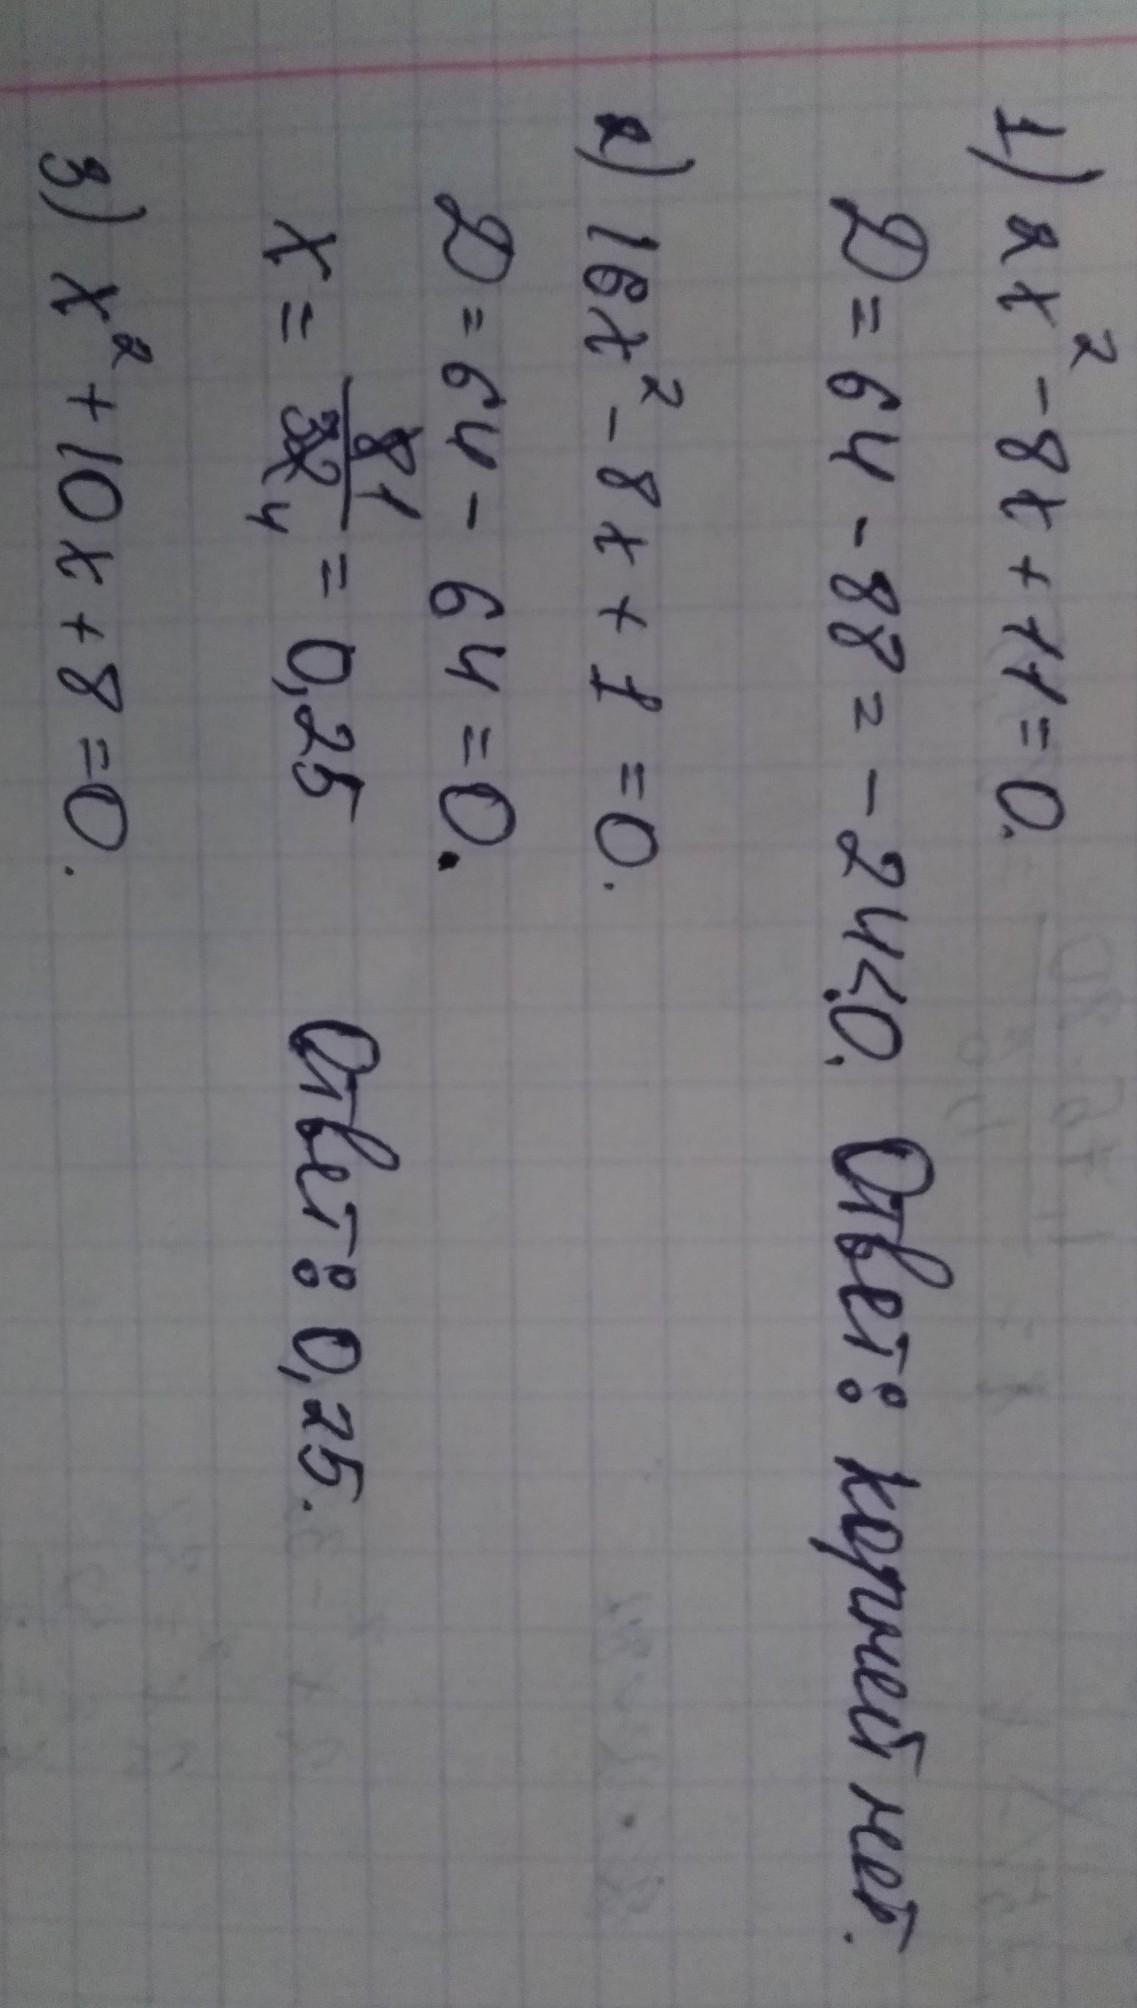 1) 2x² - 8x + 11 = 0.
D = 64 - 88 = - 24 < 0. Ответ: корней нет.
2) 16x² - 8x + 1 = 0.
D = 64 - 64 = 0.
x = 8 1 / 32 4 = 0,25 Ответ: 0,25.
3) x² + 10x + 8 = 0.